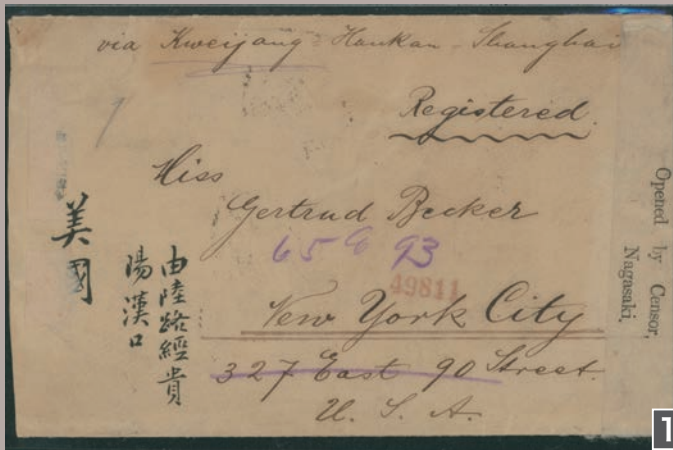 via Kweijang - Hankau - Shanghai
Registered.
Miss
Gertrud Becker
65693
49811
New York City
327 East 90 Street.
U. S. A.
美國
由陸路經貴
陽漢口
Opened by Censor,
Nagasaki.
1